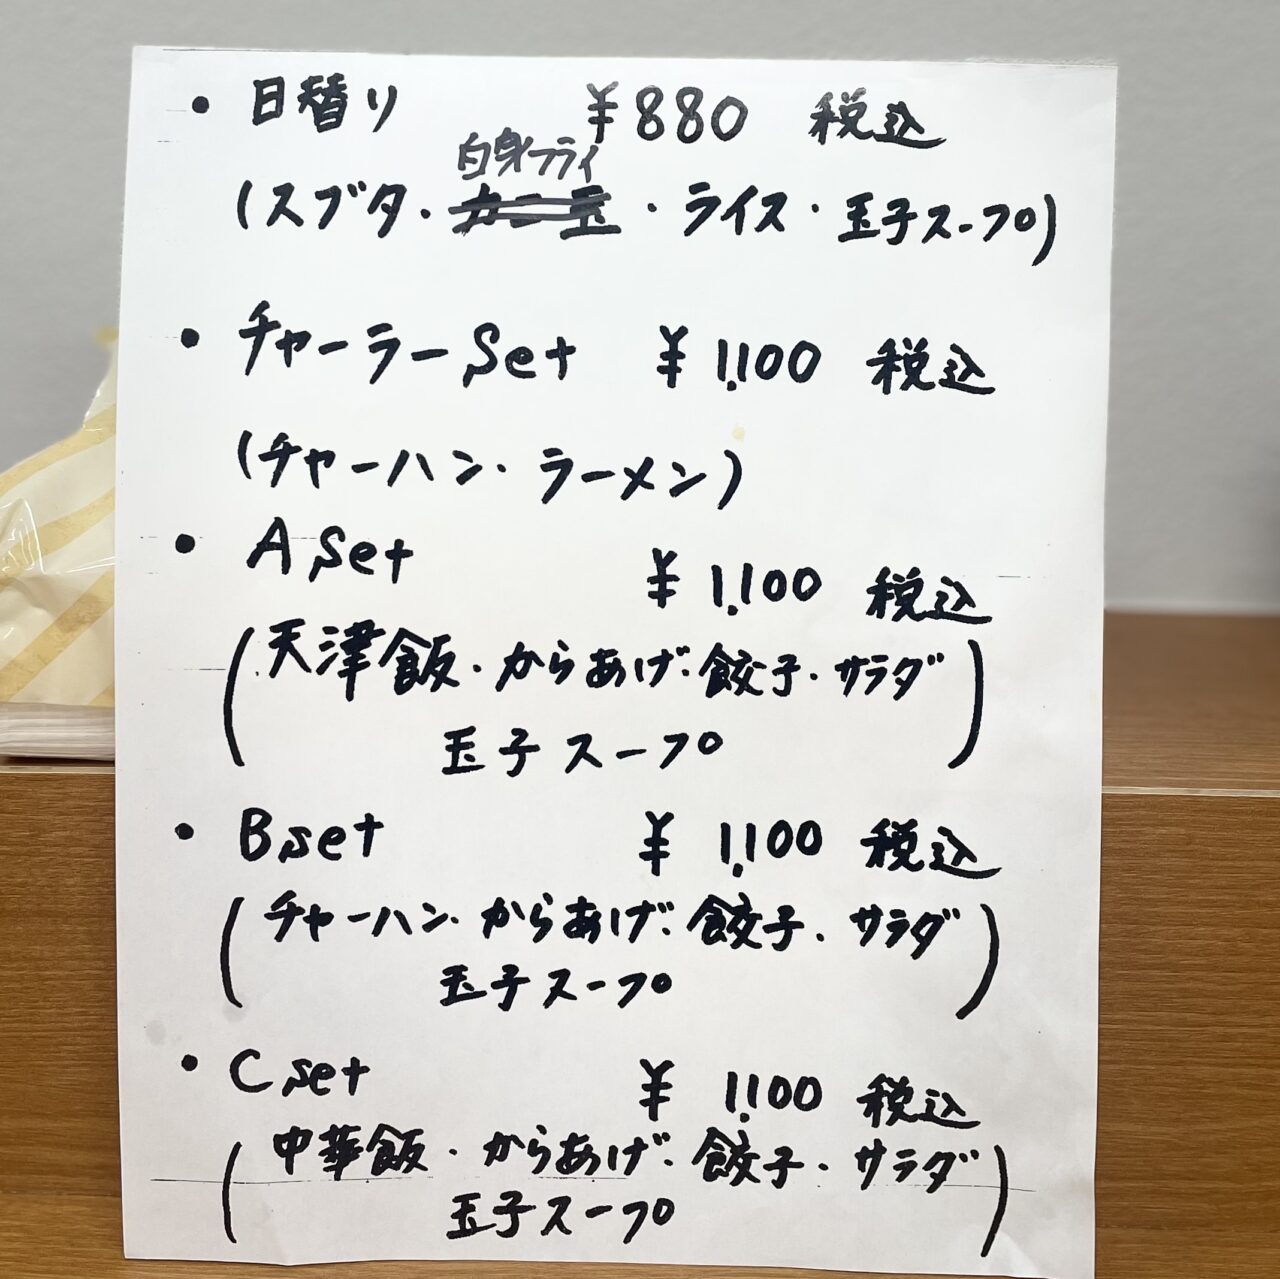 ・日替り ¥880 税込
白身フライ
(スブタ・カニ玉・ライス・玉子スープ)
・チャーラーSet ¥1,100 税込
(チャーハン・ラーメン)
・A Set ¥1,100 税込
(天津飯・からあげ・餃子・サラダ
玉子スープ)
・B set ¥1,100 税込
(チャーハン・からあげ・餃子・サラダ
玉子スープ)
・C set ¥1,100 税込
(中華飯・からあげ・餃子・サラダ
玉子スープ)